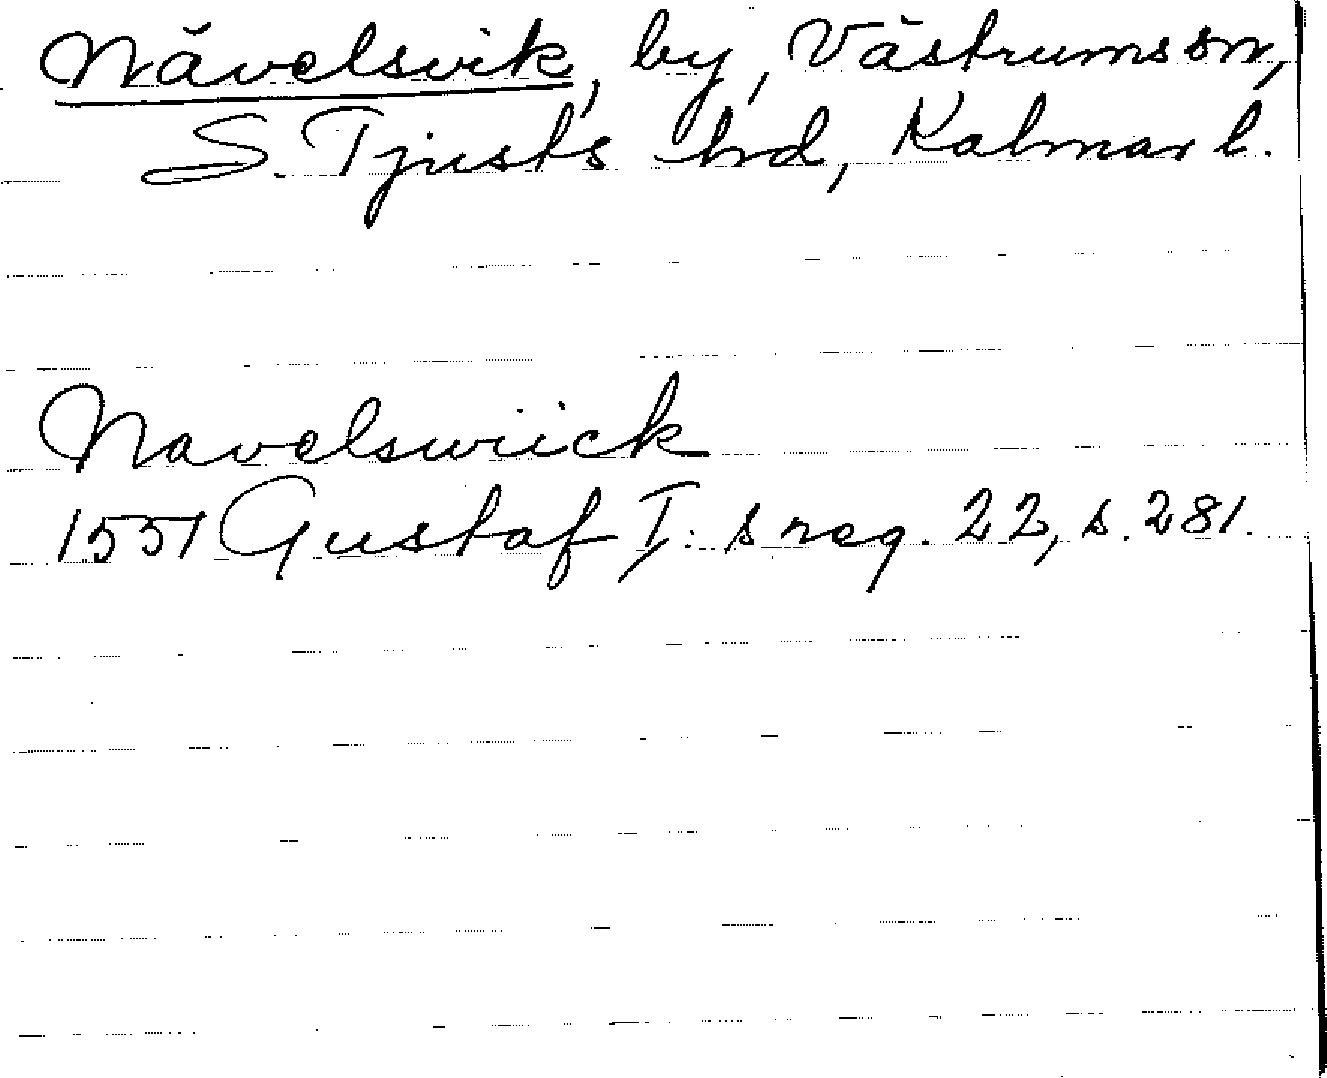 Nävelsvik, by, Västrums sn,
S. Tjusts hd, Kalmar l.
Navelswiick
1551 Gustaf I: s reg. 22, s. 281.